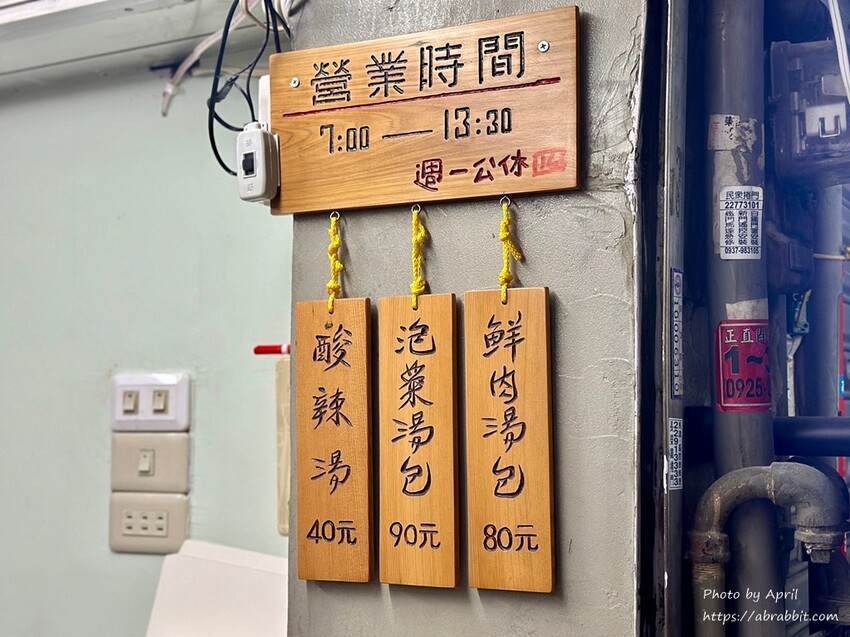 營業時間
7:00 — 13:30
週一公休
鮮肉湯包
80元
泡菜湯包
90元
酸辣湯
40元
民眾捲門
22773101
0937-983105
正直
1~
0925-
Photo by April
https://abrabbit.com